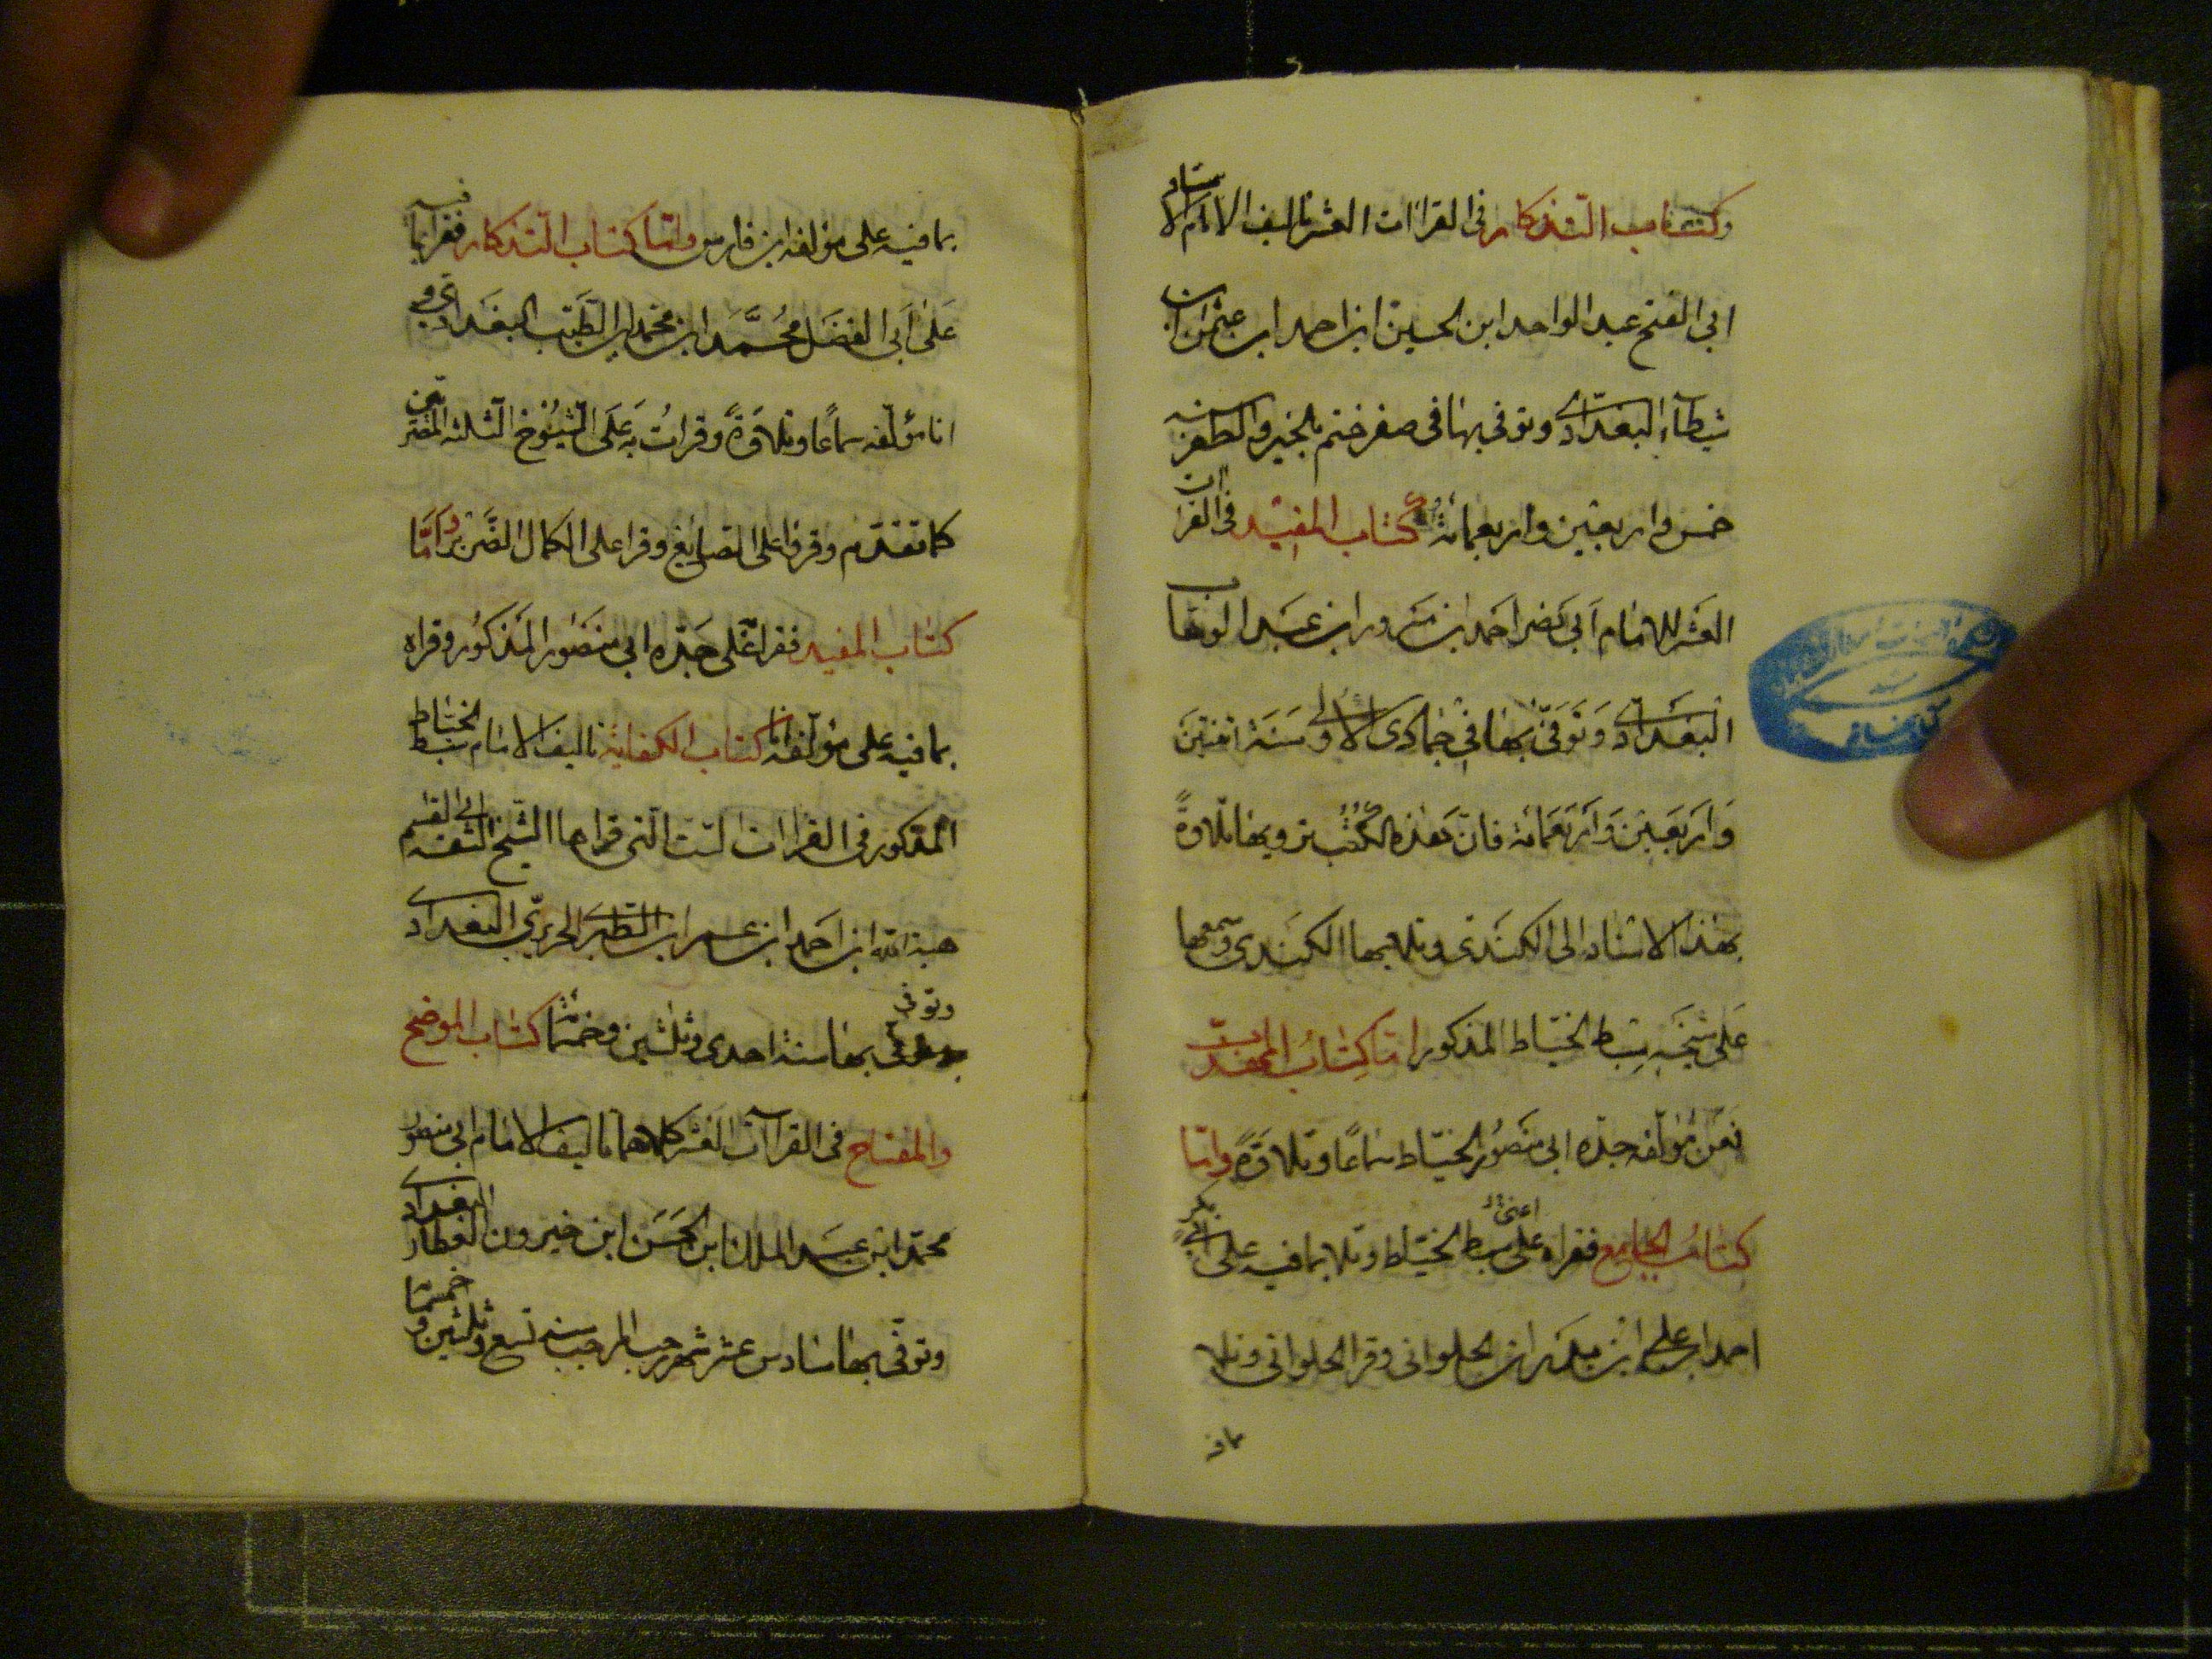 وكتاب التذكار في القراات العشر تاليف الامام الاستاد
ابي الفتح عبد الواحد ابن الحسين ابن احمد ابن عثمان ابن
شيطاء البغدادي وتوفى بها في صفر ختم بالخير والظفر سنه
خمس واربعين واربعمائة وكتاب المفيد في القراات
العشر للامام ابي نصر احمد ابن مسرور ابن عبد الوهاب
البغدادي وتوفى بها في جمادى الاولى سنة اثنتين
واربعين واربعمائة فان هذه الكتب يرويها تلاوة
بهذا الاسناد الى الكندى وتلا بها الكندى وسمعها
على شيخه سبط الخياط المذكور اما كتاب المهذب
فعن مؤلفه جده ابى منصور الخياط سماعا وتلاوة واما
كتاب الجامع فقراه على اعنى سبط الخياط وتلا بما فيه على ابى بكر
احمد ابن علي ابن بدران الحلوانى وقرا الحلوانى وتلا
بما فيه
بما فيه على مؤلفه ابن فارس واما كتاب التذكار فقرا بما فيه
على ابي الفضل محمد ابن محمد ابن الطيب البغدادي و
انا مؤلفه سماعا وتلاوة وقرات به على الشيوخ الثلثه المصريين
كما تقدم وقرؤا على الصايغ وقرا على الكمال الضرير واما
كتاب المفيد فقرا على جده ابي منصور المذكور وقراه
بما فيه على مؤلفه كتاب الكفاية تاليف الامام سبط الخياط
المذكور في القراات الست التي قراها الشيخ الثقه ابى القسم
هبة الله ابن احمد ابن عمر ابن الطبر الحريري البغدادي
وتوفى بها سنة احدى وثلثين وخمسمائة كتاب الموضح
والمفتاح في القراآت العشر كلاهما تاليف الامام ابى منصور
محمد ابن عبد الملك ابن الحسن ابن خيرون العطار البغدادي
وتوفى بها سادس عشر شهر رجب المرجب سنه تسع وثلثين و خمسمائة